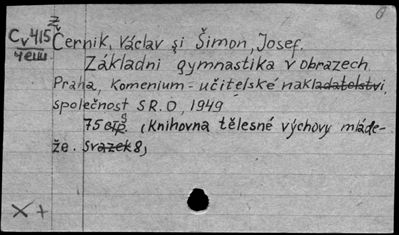 ž
Cv415
čeш
Černík, Václav și Šimon, Josef.
Základní gymnastika v obrazech.
Praha, Komenium = učitelské nakladatelství,
společnost S.R.O, 1949
75 str. (Knihovna tělesné výchovy mláde-
že. Svazek 8)
X +